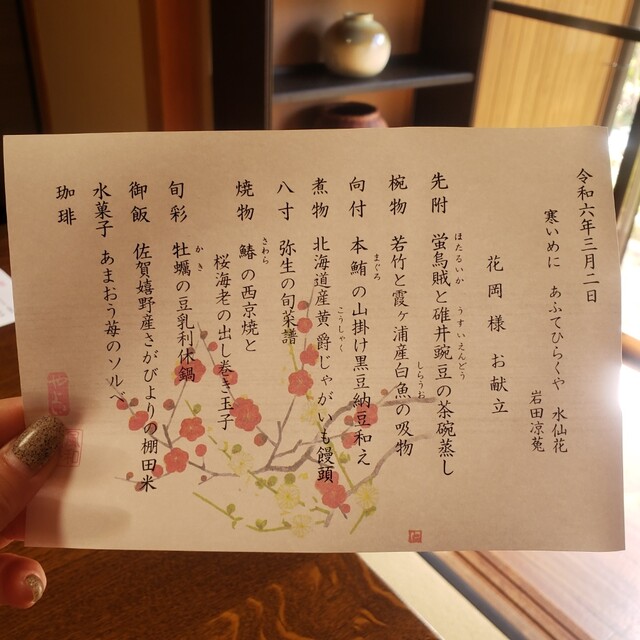 令和六年三月二日
寒いめに あふてひらくや 水仙花
岩田涼菟
花岡様 お献立
先附 蛍烏賊と碓井豌豆の茶碗蒸し
ほたるいか うすいえんどう
椀物 若竹と霞ヶ浦産白魚の吸物
しらうお
向付 本鮪の山掛け黒豆納豆和え
まぐろ
煮物 北海道産黄爵じゃがいも饅頭
こうしゃく
八寸 弥生の旬菜譜
焼物 鰆の西京焼と
さわら
桜海老の出し巻き玉子
旬彩 牡蠣の豆乳利休鍋
かき
御飯 佐賀嬉野産さがびよりの棚田米
水菓子 あまおう苺のソルベ
珈琲